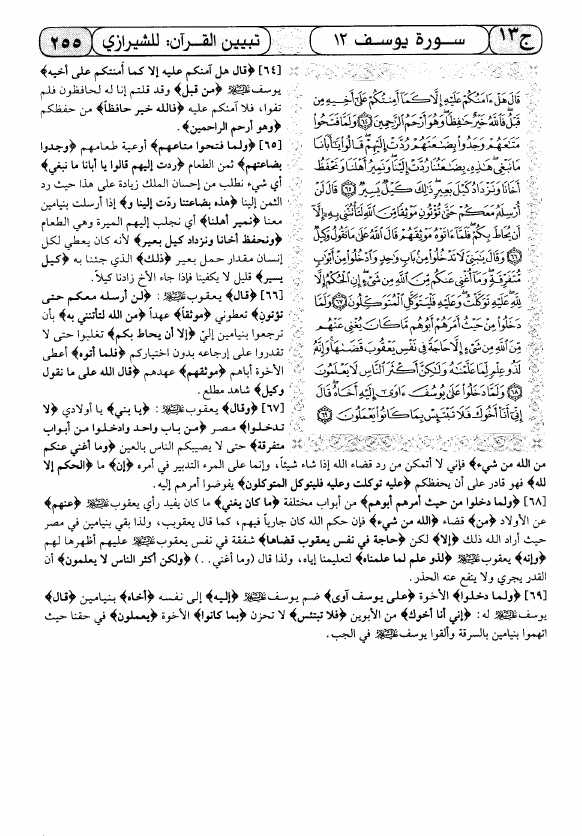 ج١٣
سورة يوسف ١٢
تبيين القرآن: للشيرازي
٢٥٥
قَالَ هَلْ ءَامَنُكُمْ عَلَيْهِ إِلَّا كَمَا أَمِنتُكُمْ عَلَىٰ أَخِيهِ مِن
قَبْلُ فَاللَّهُ خَيْرٌ حَافِظًا وَهُوَ أَرْحَمُ الرَّاحِمِينَ ﴿٦٤﴾ وَلَمَّا فَتَحُوا
مَتَاعَهُمْ وَجَدُوا بِضَاعَتَهُمْ رُدَّتْ إِلَيْهِمْ قَالُوا يَا أَبَانَا
مَا نَبْغِي هَٰذِهِ بِضَاعَتُنَا رُدَّتْ إِلَيْنَا وَنَمِيرُ أَهْلَنَا وَنَحْفَظُ
أَخَانَا وَنَزْدَادُ كَيْلَ بَعِيرٍ ذَٰلِكَ كَيْلٌ يَسِيرٌ ﴿٦٥﴾ قَالَ لَنْ
أُرْسِلَهُ مَعَكُمْ حَتَّىٰ تُؤْتُونِ مَوْثِقًا مِّنَ اللَّهِ لَتَأْتُنَّنِي بِهِ إِلَّا
أَن يُحَاطَ بِكُمْ فَلَمَّا ءَاتَوْهُ مَوْثِقَهُمْ قَالَ اللَّهُ عَلَىٰ مَا نَقُولُ وَكِيلٌ
﴿٦٦﴾ وَقَالَ يَا بَنِيَّ لَا تَدْخُلُوا مِن بَابٍ وَاحِدٍ وَادْخُلُوا مِنْ أَبْوَابٍ
مُّتَفَرِّقَةٍ وَمَا أُغْنِي عَنكُم مِّنَ اللَّهِ مِن شَيْءٍ إِنِ الْحُكْمُ إِلَّا
لِلَّهِ عَلَيْهِ تَوَكَّلْتُ وَعَلَيْهِ فَلْيَتَوَكَّلِ الْمُتَوَكِّلُونَ ﴿٦٧﴾ وَلَمَّا
دَخَلُوا مِنْ حَيْثُ أَمَرَهُمْ أَبُوهُم مَّا كَانَ يُغْنِي عَنْهُم
مِّنَ اللَّهِ مِن شَيْءٍ إِلَّا حَاجَةً فِي نَفْسِ يَعْقُوبَ قَضَاهَا وَإِنَّهُ
لَذُو عِلْمٍ لِّمَا عَلَّمْنَاهُ وَلَٰكِنَّ أَكْثَرَ النَّاسِ لَا يَعْلَمُونَ
﴿٦٨﴾ وَلَمَّا دَخَلُوا عَلَىٰ يُوسُفَ ءَاوَىٰ إِلَيْهِ أَخَاهُ قَالَ
إِنِّي أَنَا أَخُوكَ فَلَا تَبْتَئِسْ بِمَا كَانُوا يَعْمَلُونَ ﴿٦٩﴾
[٦٤] ﴿قال هل آمنكم عليه إلا كما أمنتكم على أخيه﴾
يوسف ﴿من قبل﴾ وقد قلتم إنا له لحافظون فلم
تفوا، فلا آمنكم عليه ﴿فالله خير حافظاً﴾ من حفظكم
﴿وهو أرحم الراحمين﴾.
[٦٥] ﴿ولما فتحوا متاعهم﴾ أوعية طعامهم ﴿وجدوا
بضاعتهم﴾ ثمن الطعام ﴿ردت إليهم قالوا يا أبانا ما نبغي﴾
أي شيء نطلب من إحسان الملك زيادة على هذا حيث رد
الثمن إلينا ﴿هذه بضاعتنا ردت إلينا و﴾ إذا أرسلت بنيامين
معنا ﴿نمير أهلنا﴾ أي نجلب إليهم الميرة وهي الطعام
﴿ونحفظ أخانا ونزداد كيل بعير﴾ لأنه كان يعطي لكل
إنسان مقدار حمل بعير ﴿ذلك﴾ الذي جئنا به ﴿كيل
يسير﴾ قليل لا يكفينا فإذا جاء الأخ زادنا كيلاً.
[٦٦] ﴿قال﴾ يعقوب: ﴿لن أرسله معكم حتى
تؤتون﴾ تعطوني ﴿موثقاً﴾ عهداً ﴿من الله لتأتنني به﴾ بأن
ترجعوا بنيامين إليّ ﴿إلا أن يحاط بكم﴾ تغلبوا حتى لا
تقدروا على إرجاعه بدون اختياركم ﴿فلما آتوه﴾ أعطى
الأخوة أباهم ﴿موثقهم﴾ عهدهم ﴿قال الله على ما نقول
وكيل﴾ شاهد مطلع.
[٦٧] ﴿وقال﴾ يعقوب: ﴿يا بني﴾ يا أولادي ﴿لا
تدخلوا﴾ مصر ﴿من باب واحد وادخلوا من أبواب
متفرقة﴾ حتى لا يصيبكم الناس بالعين ﴿وما أغني عنكم
من الله من شيء﴾ فإني لا أتمكن من رد قضاء الله إذا شاء شيئاً، وإنما على المرء التدبير في أمره ﴿إن﴾ ما ﴿الحكم إلا
لله﴾ فهو قادر على أن يحفظكم ﴿عليه توكلت وعليه فليتوكل المتوكلون﴾ يفوضوا أمرهم إليه.
[٦٨] ﴿ولما دخلوا من حيث أمرهم أبوهم﴾ من أبواب مختلفة ﴿ما كان يغني﴾ ما كان يفيد رأي يعقوب ﴿عنهم﴾
عن الأولاد ﴿من﴾ قضاء ﴿الله من شيء﴾ فإن حكم الله كان جارياً فيهم، كما قال يعقوب، ولذا بقي بنيامين في مصر
حيث أراد الله ذلك ﴿إلا﴾ لكن ﴿حاجة في نفس يعقوب قضاها﴾ شفقة في نفس يعقوب عليهم أظهرها لهم
﴿وإنه﴾ يعقوب ﴿لذو علم لما علمناه﴾ لتعليمنا إياه، ولذا قال (وما أغني..) ﴿ولكن أكثر الناس لا يعلمون﴾ أن
القدر يجري ولا ينفع عنه الحذر.
[٦٩] ﴿ولما دخلوا﴾ الأخوة ﴿على يوسف آوى﴾ ضم يوسف ﴿إليه﴾ إلى نفسه ﴿أخاه﴾ بنيامين ﴿قال﴾
يوسف له: ﴿إني أنا أخوك﴾ من الأبوين ﴿فلا تبتئس﴾ لا تحزن ﴿بما كانوا﴾ الأخوة ﴿يعملون﴾ في حقنا حيث
اتهموا بنيامين بالسرقة وألقوا يوسف في الجب.